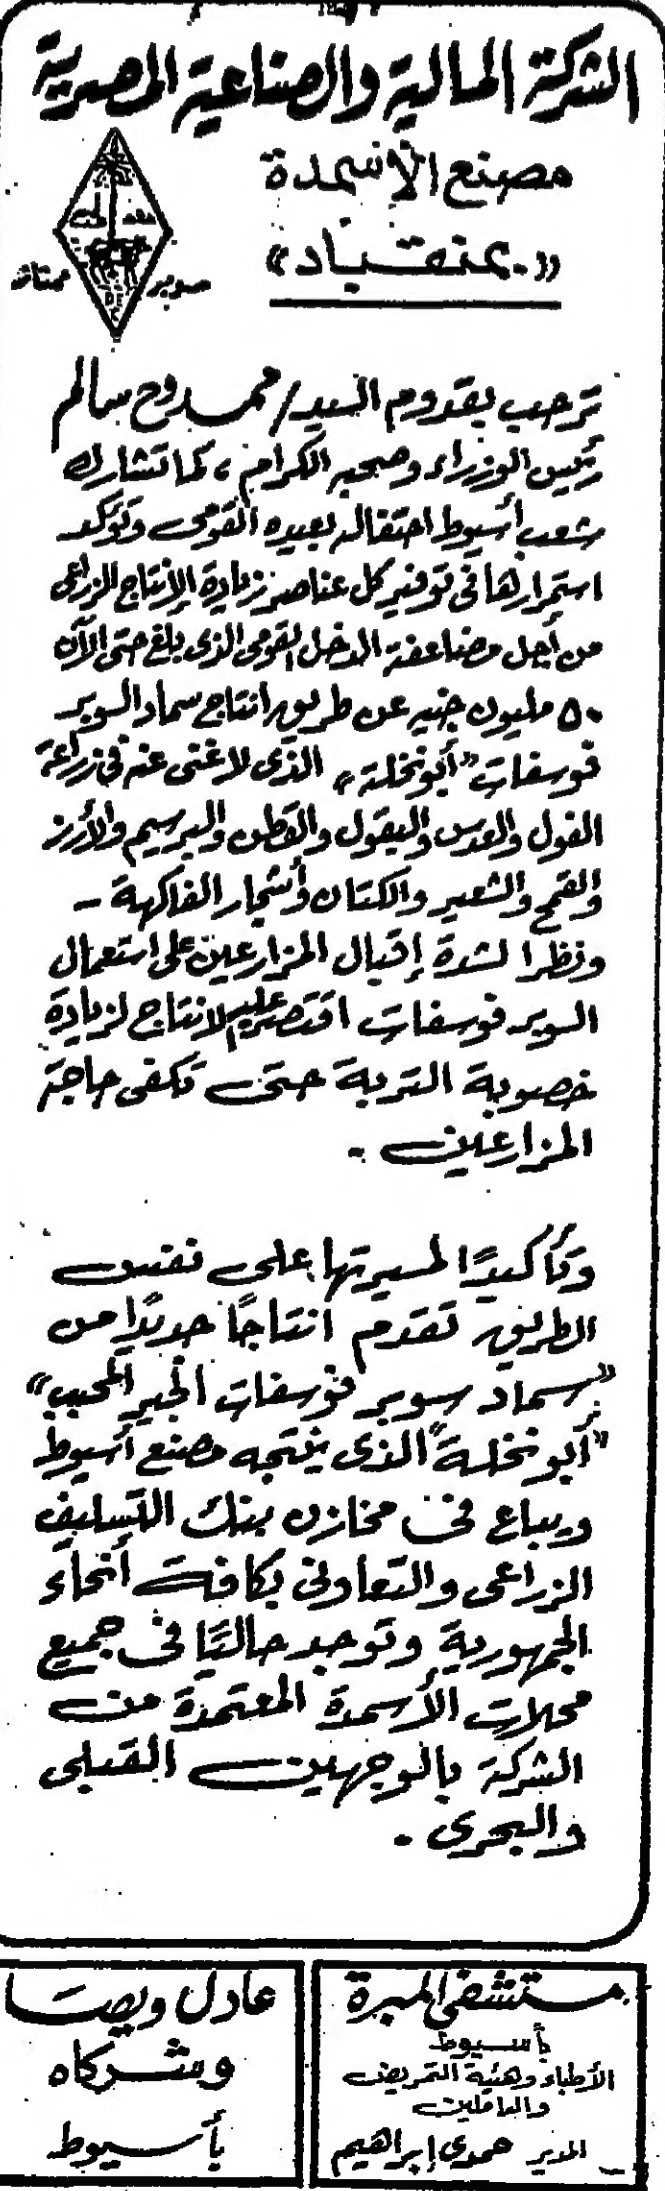 الشركة المالية والصناعية المصرية
مصنع الأسمدة
«بمنقباد»
سوبر
ممتاز
ترحب بقدوم السيد/ ممدوح سالم
رئيس الوزراء وصحبه الكرام، كما تشارك
شعب أسيوط احتفاله بعيده القومى وتؤكد
استمرارها فى توفير كل عناصر زيادة الإنتاج الزراعى
من أجل مضاعفة الدخل القومى الذى بلغ حتى الآن
٥٠ مليون جنيه عن طريق انتاج سماد السوبر
فوسفات "أبو نخلة" الذى لا غنى عنه فى زراعة
الفول والعدس والبقول والقطن والبرسيم والأرز
والقمح والشعير والكتان وأشجار الفاكهة -
ونظرا لشدة إقبال المزارعين على استعمال
السوبر فوسفات اقتصر عليه الانتاج لزيادة
خصوبة التربة حتى تكفى حاجة
المزارعين .
وتأكيدًا لمسيرتها على نفس
الطريق تقدم انتاجًا جديدًا من
"سماد سوبر فوسفات الجير المحبب"
"أبو نخلة" الذى ينتجه مصنع أسيوط
ويباع فى مخازن بنك التسليف
الزراعى والتعاونى بكافة أنحاء
الجمهورية وتوجد حاليًا فى جميع
محلات الأسمدة المعتمدة من
الشركة بالوجهين القبلى
والبحرى .
مستشفى المبرة
بأسيوط
الأطباء وهيئة التمريض
والعاملين
المدير حمدى إبراهيم
عادل ويصا
وشركاه
بأسيوط